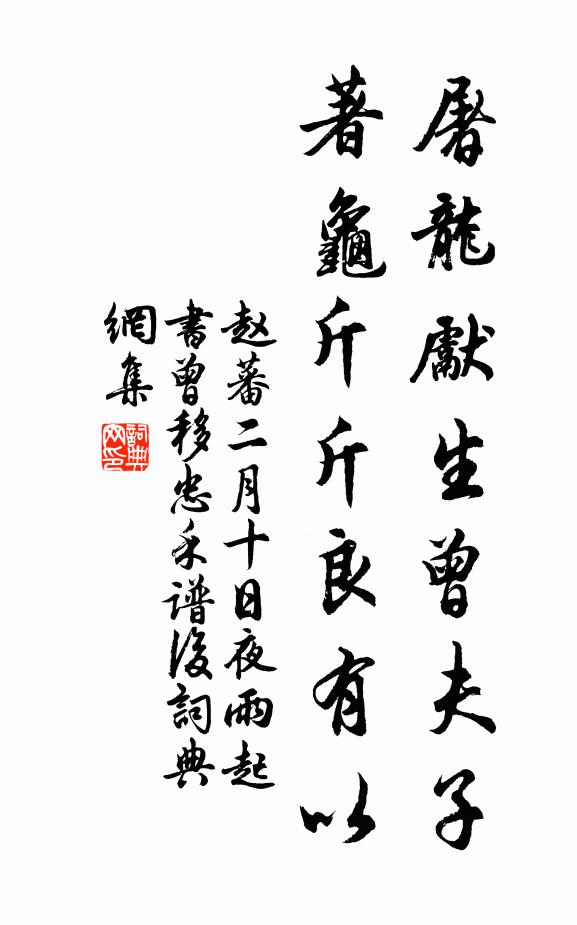 屠龍獻生曾夫子
著龜斤斤良有以
赵蕃二月十日夜雨起
書曾移忠禾谱後詞典
網集
詞典
网印